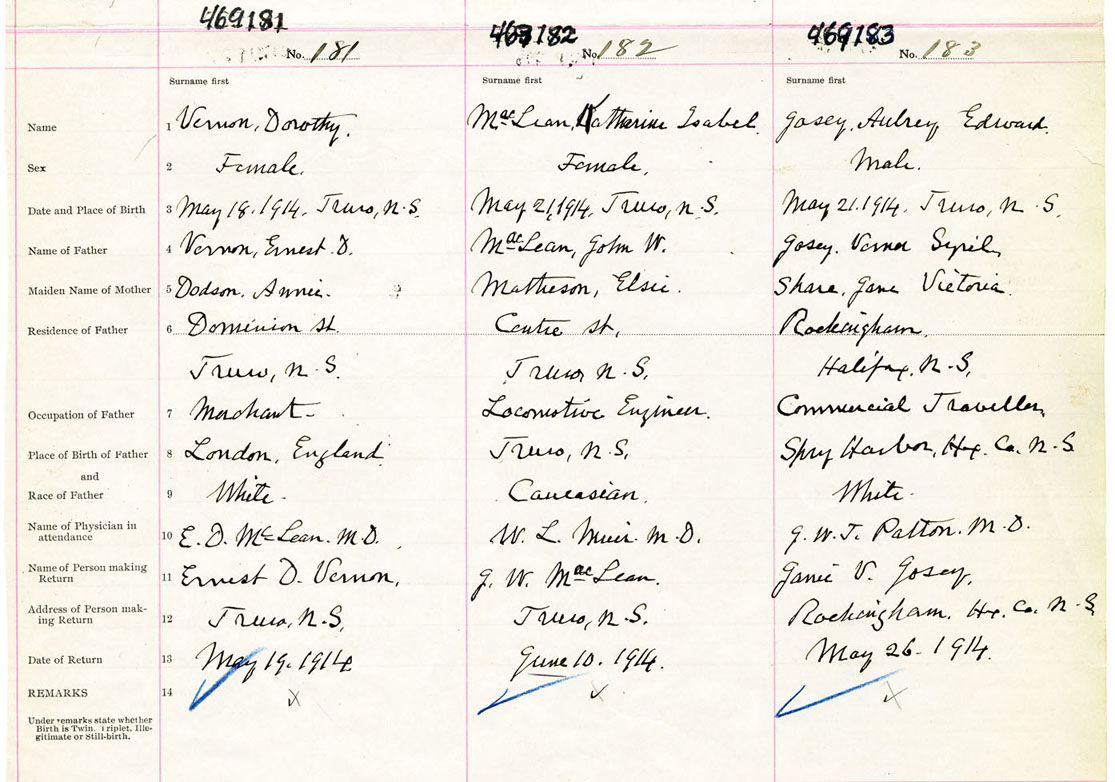 469181 469182 469183
No. 181 No. 182 No. 183
Surname first Surname first Surname first
Name 1 Vernon, Dorothy. MacLean, Katharine Isabel. Josey, Aubrey Edward.
Sex 2 Female. Female. Male.
Date and Place of Birth 3 May 18. 1914. Truro, N.S. May 21, 1914. Truro, N.S. May 21. 1914. Truro, N.S.
Name of Father 4 Vernon, Ernest D. MacLean, John W. Josey. Verner Syril
Maiden Name of Mother 5 Dodson. Annie. Matheson, Elsie. Share, Jane Victoria.
Residence of Father 6 Dominion St. Centre St. Rockingham.
Truro, N.S. Truro, N.S. Halifax, N.S.
Occupation of Father 7 Merchant Locomotive Engineer. Commercial Traveller,
Place of Birth of Father 8 London, England Truro, N.S. Spry Harbor, Hx. Co. N.S.
and
Race of Father 9 White. Caucasian. White.
Name of Physician in
attendance 10 E. D. McLean. M.D. W. L. Muir. M.D. J. W. T. Patton. M.D.
Name of Person making
Return 11 Ernest D. Vernon, J. W. MacLean. Janie V. Josey,
Address of Person mak-
ing Return 12 Truro, N.S. Truro, N.S. Rockingham. Hx. Co. N.S.
Date of Return 13 May 19. 1914 June 10. 1914. May 26. 1914.
REMARKS 14 x x
Under remarks state whether
Birth is Twin, Triplet, Ille-
gitimate or Still-birth.